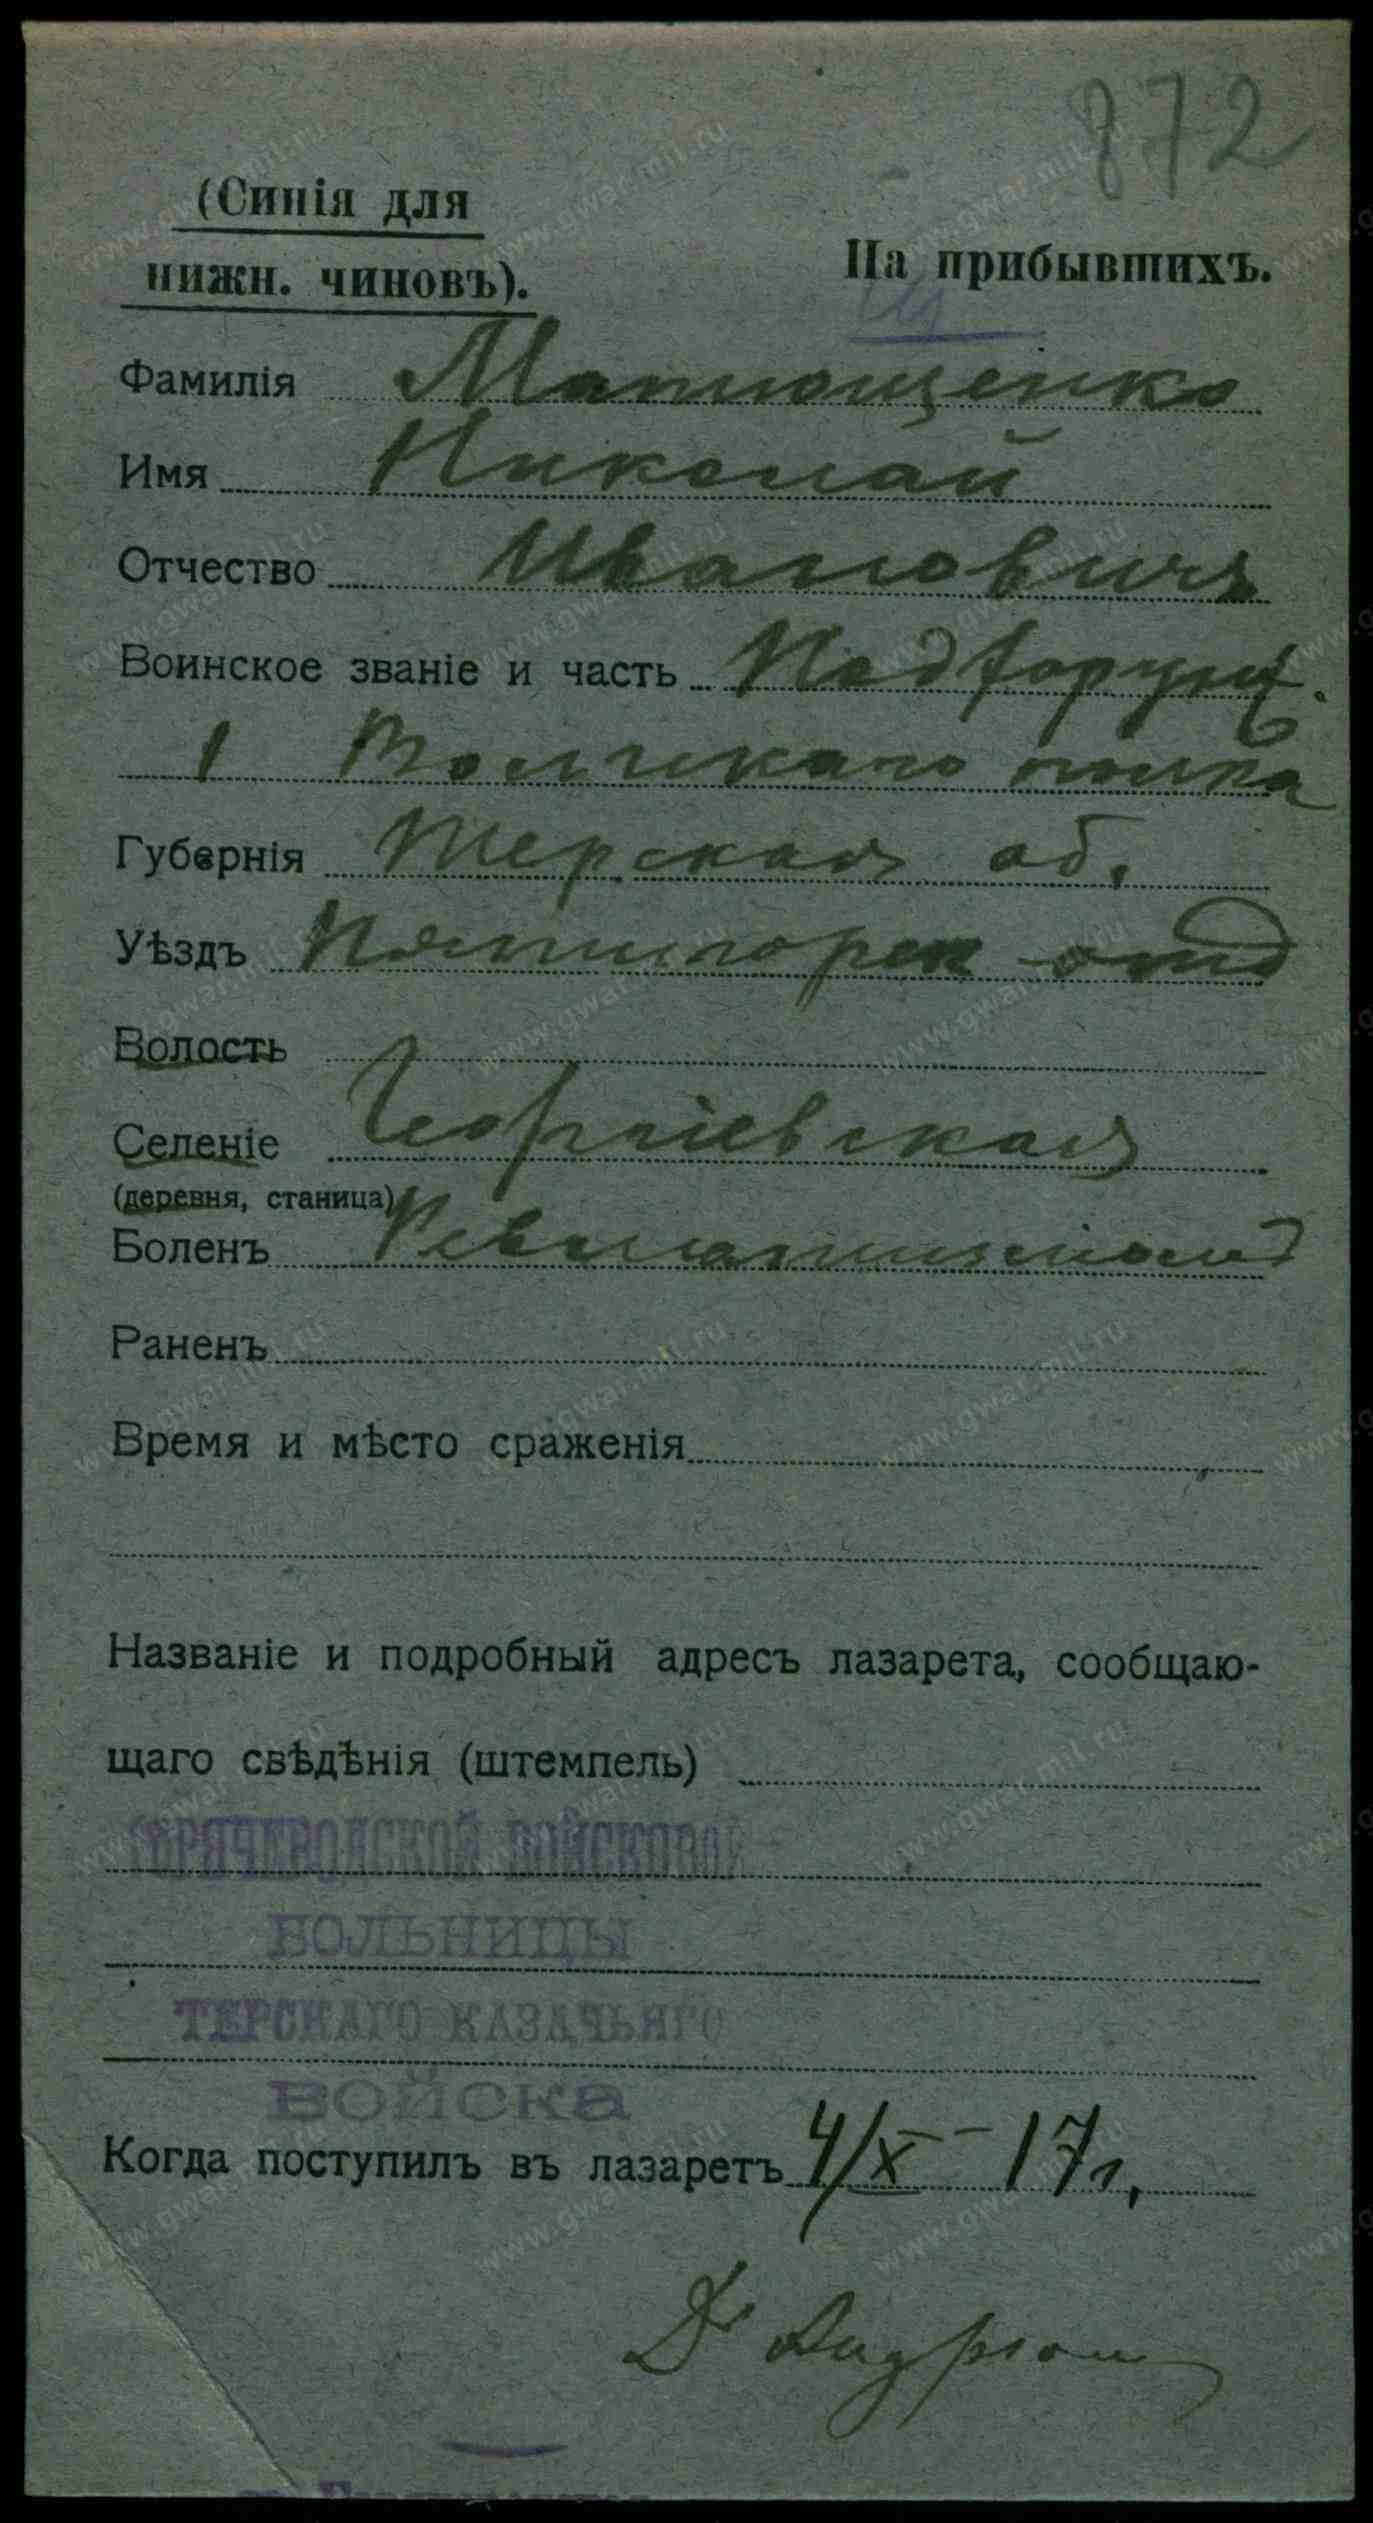 872
(Синія для
нижн. чиновъ).
На прибывшихъ.
Фамилія Матющенко
Имя Николай
Отчество Ивановичъ
Воинское званіе и часть Подхорунж.
1 Волгскаго полка
Губернія Терская об.
Уѣздъ Пятигорск отд
Волость
Селеніе Георгіевская
(деревня, станица)
Боленъ Ревматизмомъ
Раненъ
Время и мѣсто сраженія
Названіе и подробный адресъ лазарета, сообщаю-
щаго свѣдѣнія (штемпель)
ГОРЯЧЕВОДСКОЙ ВОЙСКОВОЙ
БОЛЬНИЦЫ
ТЕРСКАГО КАЗАЧЬЯГО
ВОЙСКА
Когда поступилъ въ лазаретъ 4/X - 17 г.
Dr
www.gwar.mil.ru